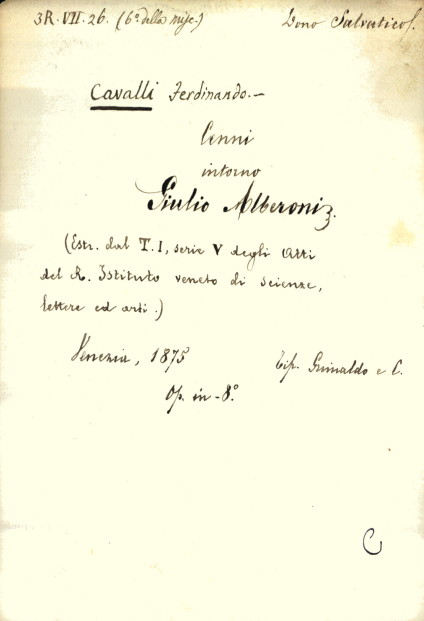 3R. VII. 26. (6º della misc.) Dono Salvatico.
Cavalli Ferdinando.-
Cenni
intorno
Giulio Alberoni
(Estr. dal T. I, serie V degli Atti
del R. Istituto veneto di scienze,
lettere ed arti.)
Venezia, 1875 tip. Grimaldo e C.
Op. in-8.º
C